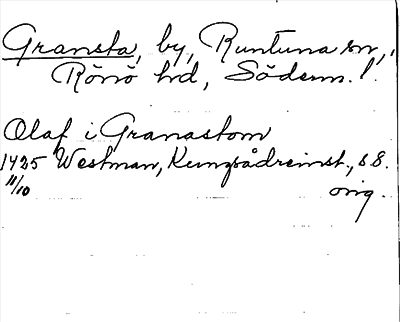 Gransta, by, Runtuna sn,
Rönö hd, Söderm. l.
Olaf i Granastom
1425 Westman, Kungsådreinst., s 8.
11/10 orig.